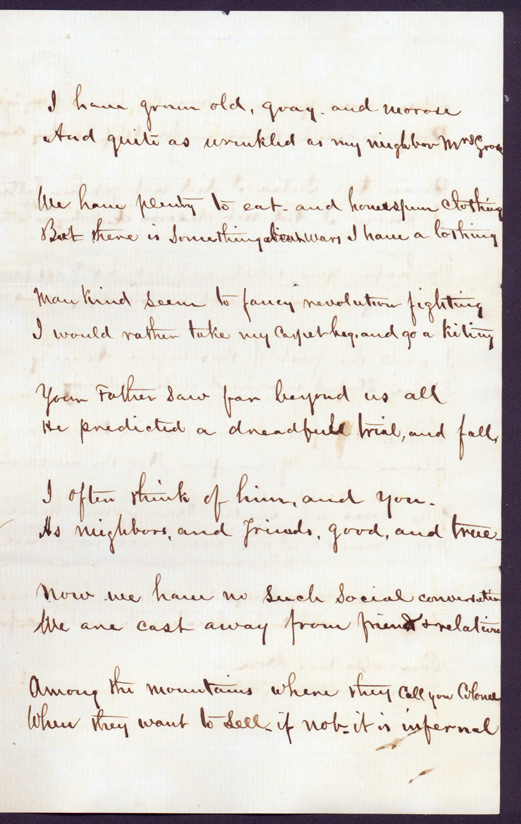 I have grown old, gray. and morose
And quite as wrinkled as my neighbor Mrs Gross
We have plenty to eat. and homespun clothing
But there is Something about Wars I have a lothing
Man kind seem to fancy revolution fighting
I would rather take my carpet-beg. and go a kiting
Your Father Saw far beyond us all
He predicted a dreadfull trial, and fall,
I often think of him, and you.
As neighbors, and friends, good, and true
Now we have no such Social conversation
We are cast away from friend & relation
Among the mountains where they call you Colonel
When they want to Sell. if not. it is infernal